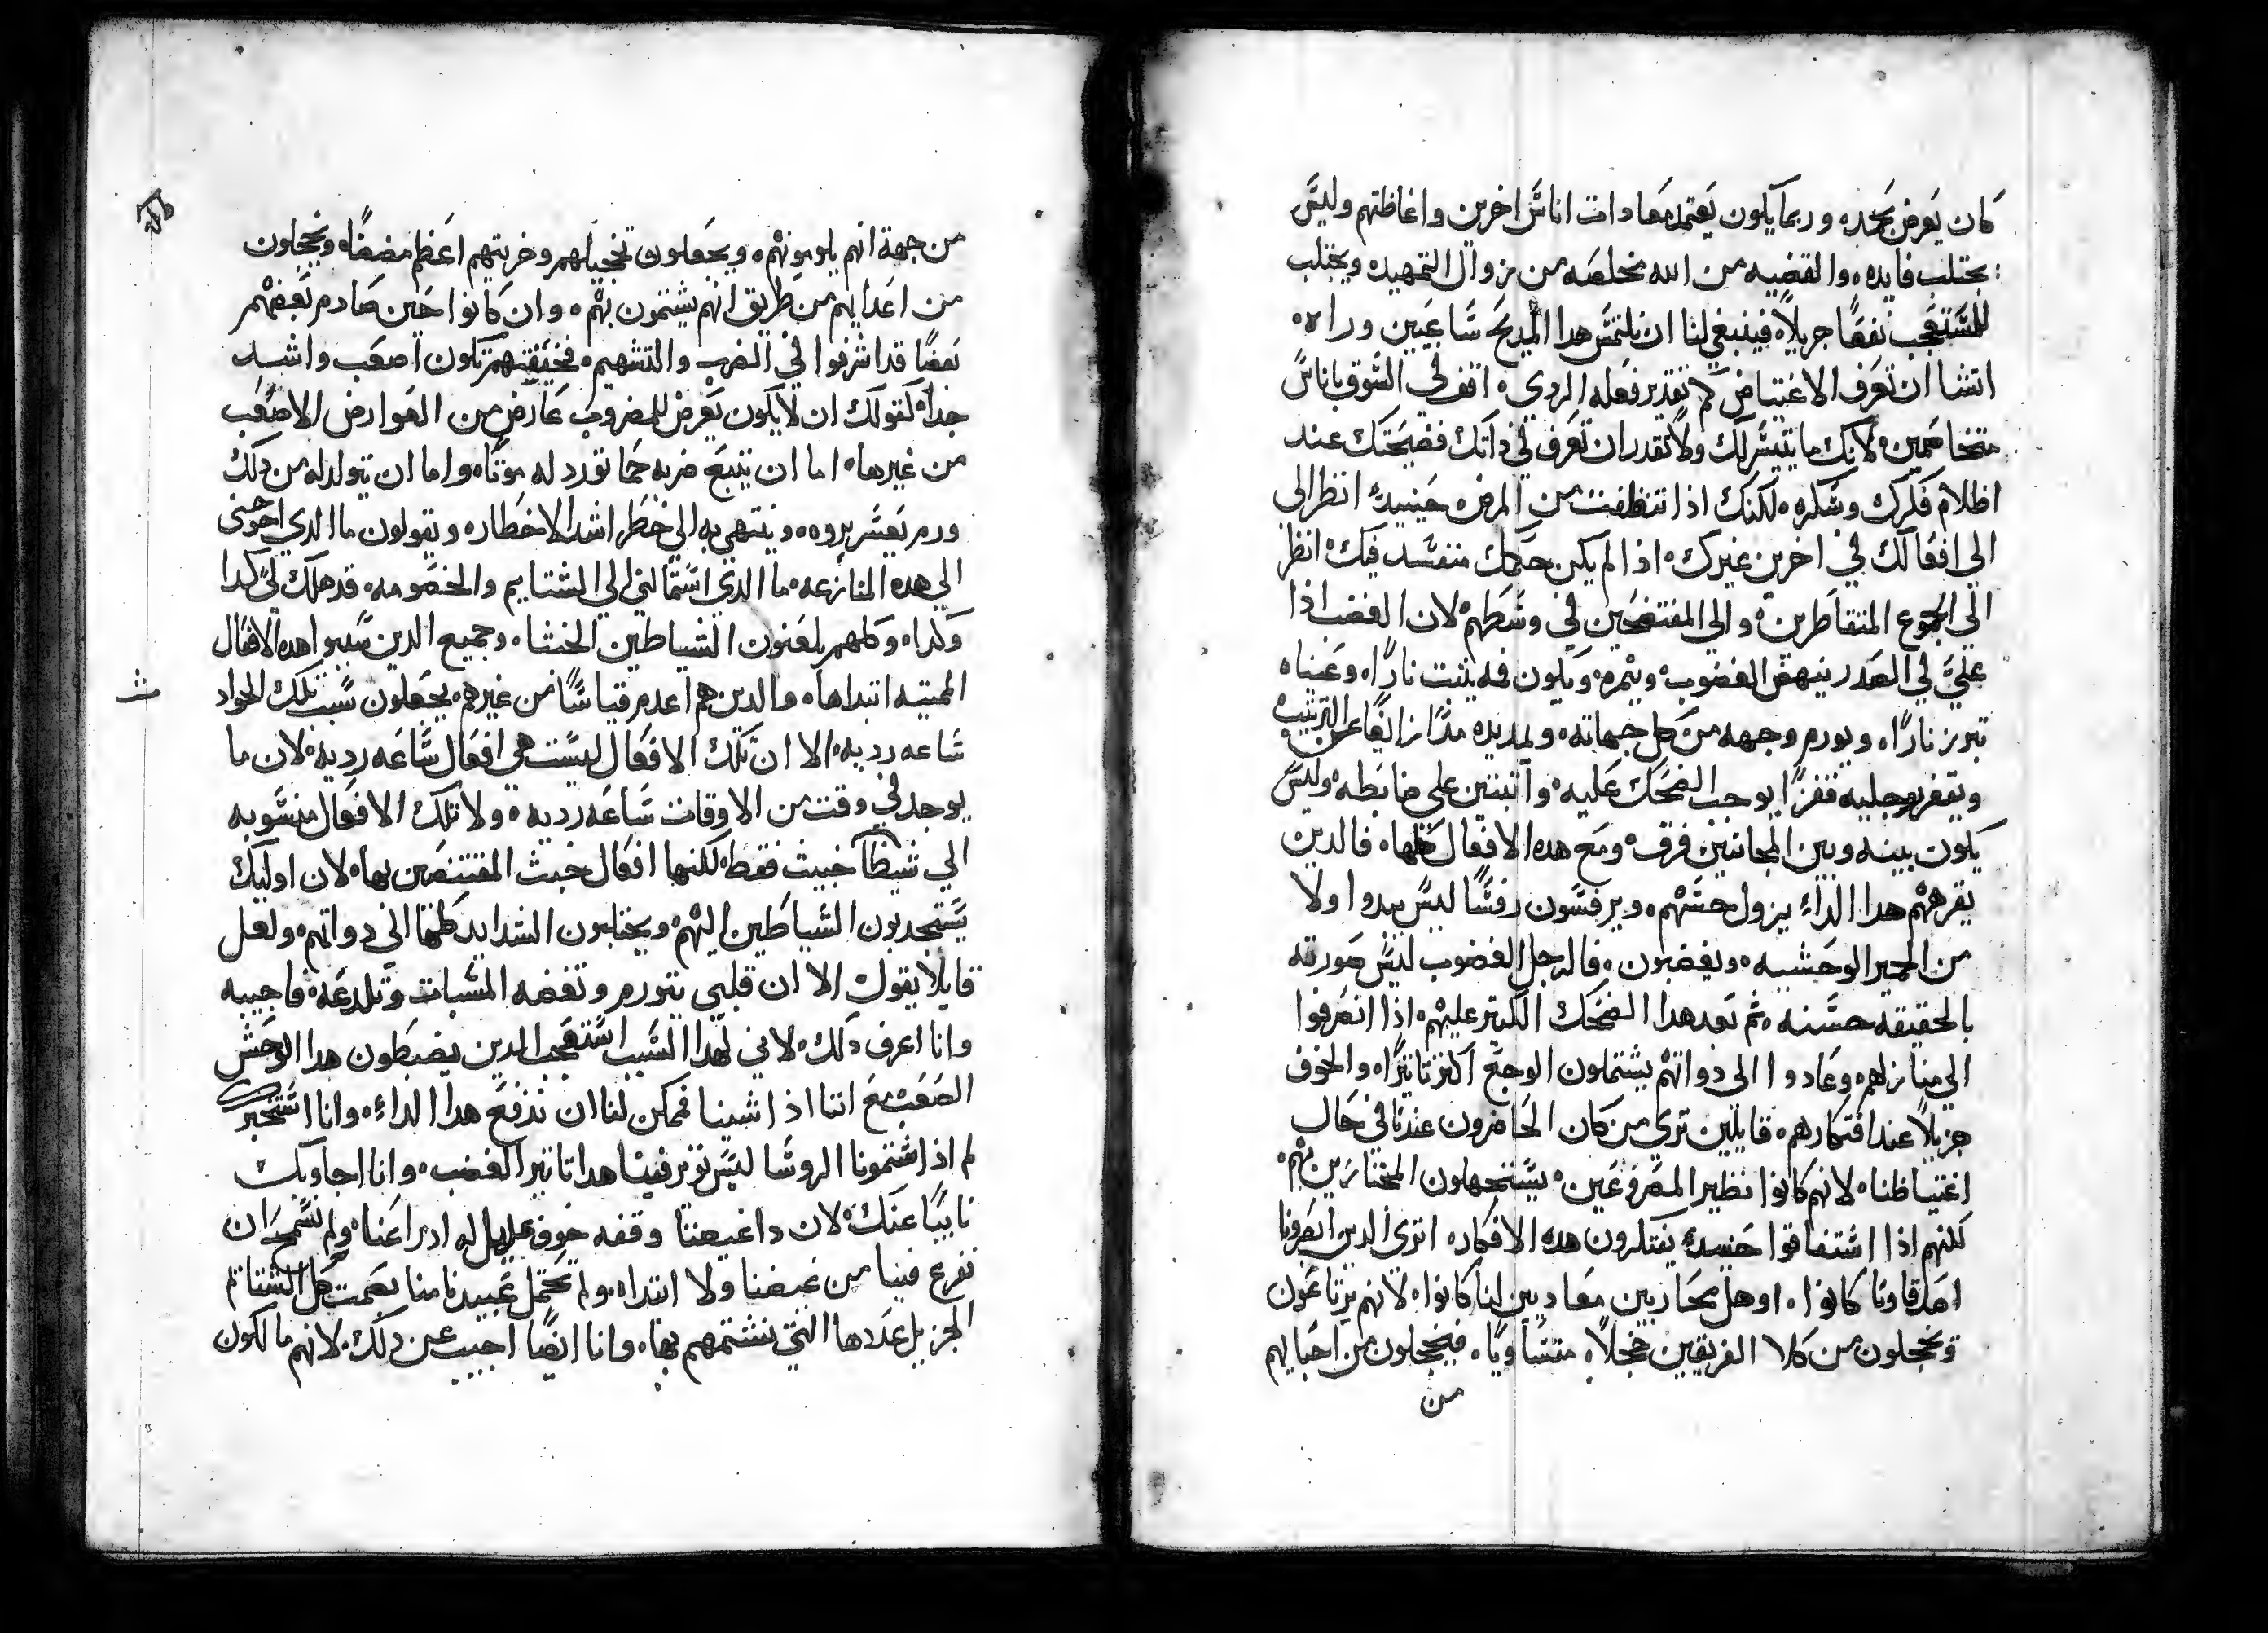 كان يعرض بجده وربما يكون يعتمد معادات اناس اخرين واغاظتهم وليس
يجتلب فايده والقضيه من الله مخلصه من زوال التمهيد ويجتلب
للمستعجب نفعًا جزيلاً فينبغي لنا ان نلتمس هدا المديح ساعيين وراه
اتشا ان تعرف الاغتياض كم تقدير فعله الردي اقف في السوق باناس
متخاصمين لانك ما يتيسر لك ولا تقدر ان تعرف في داتك فضيحتك عند
اظلام فكرك وسكره لكنك اذا تنظفت من المرض حينيدٍ انظر الى
الي افعالك في اخرين غيرك اذا لم يكن حكمك منفسد فيك انظر
الي الجموع المتقاطرين والي المفتضحين في وسطهم لان الغضب اذا
غلي في الصدر ينهض الغضوب وينمره ويكون فمه ينبت نارًا وعيناه
تبرز نارًا ويورم وجهه من كل جهاته ويمد يده مدًا زايغًا عن الترتيب
ويقفز برجليه قفزًا يوجب الضحك عليه واتبتين على ضابطه وليس
يكون بينه وبين المجانين فرق ومع هده الافعال كلها فالدين
يقرهم هدا الدآء يزول حسهم ويرفسون رفسًا ليس بدوا ولا
من الحمير الوحشيه ويعضون فالرجل الغضوب ليس صورته
بالحقيقه حسنه ثم بعد هدا الضحك الكتير عليهم اذا انصرفوا
الى منازلهم وعادوا الى دواتهم يشتملون الوجع اكتر تاتيرًا والخوف
جزيلاً عند افتكارهم قايلين تري من كان الحاضرون عندنا في حال
اغتياظنا لانهم كانوا نظير المصروعين يستجهلون المجتازين بهم
لكنهم اذا استفاقوا حنيدٍ يفتكرون هده الافكار اتري الدين ابصرونا
اصدقاونا كانوا اوهل محاربين معاديين لنا كانوا لانهم يرتاعون
ويخجلون من كلا الفريقين خجلاً متساويًا فيخجلون من احبايهم
من
من جهة انهم يلومونهم ويجعلون تخجيلهم وخزيتهم اعظم مضضًا ويخجلون
من اعدايهم من طريق انهم يشتمون بهم وان كانوا حين صادم بعضهم
بعضًا قد اشرفوا في الضرب والتشهيم فخيفتهم تكون اصعب واشد
جدًا كقولك ان لا يكون يعرض للمضروب عارض من العوارض الاصعب
من غيرها اما ان يتبع ضربه حما تورد له موتًا واما ان يتولد له من دلك
ورم يعسر بروه وينتهي به الي خطر اشد الاخطار ويقولون ما الدي احوجني
الي هده المنازعه ما الدي استمالني الي الشتايم والخصومه قد هلك لي كدا
وكدا وكلهم يلعنون الشياطين الخبثا وجميع الدين سببوا هده الافعال
المميته ابتداها والدين هم اعدم قياسًا من غيرهم يجعلون سبب تلك الحوادث
ساعه رديه الا ان تلك الافعال ليست هي افعال ساعه رديه لان ما
يوجد في وقت من الاوقات ساعه رديه ولا تلك الافعال منسوبه
الي شيطان خبيث فقط لكنها افعال خبث المقتنصين بها لان اوليك
يستجدبون الشياطين اليهم ويجتلبون الشدايد كلها الى دواتهم ولعل
قايلاً يقول الا ان قلبي يتورم وتعضه المسبات وتلدعه فاجيبه
وانا اعرف دلك لاني لهدا السبب استعجب الدين يضبطون هدا الوحش
الصعب مع اننا اذ اشينا فممكن لنا ان ندفع هدا الداء وانا استخبر
لم اذ اشتمونا الروسا ليس تورد فينا هدا تاتير الغضب وانا اجاوبك
نايبًا عنك لان داغيعننا وقفه خوف لله ادراعنا ولم نسمح ان
تفرع فينا من غيضنا ولا ابتداه ولم يحتمل عبيدنا منا بصمت كل الشتايم
الجزيل عددها التي نشتمهم بها وانا ايضًا اجيب عن دلك لانهم مالكون